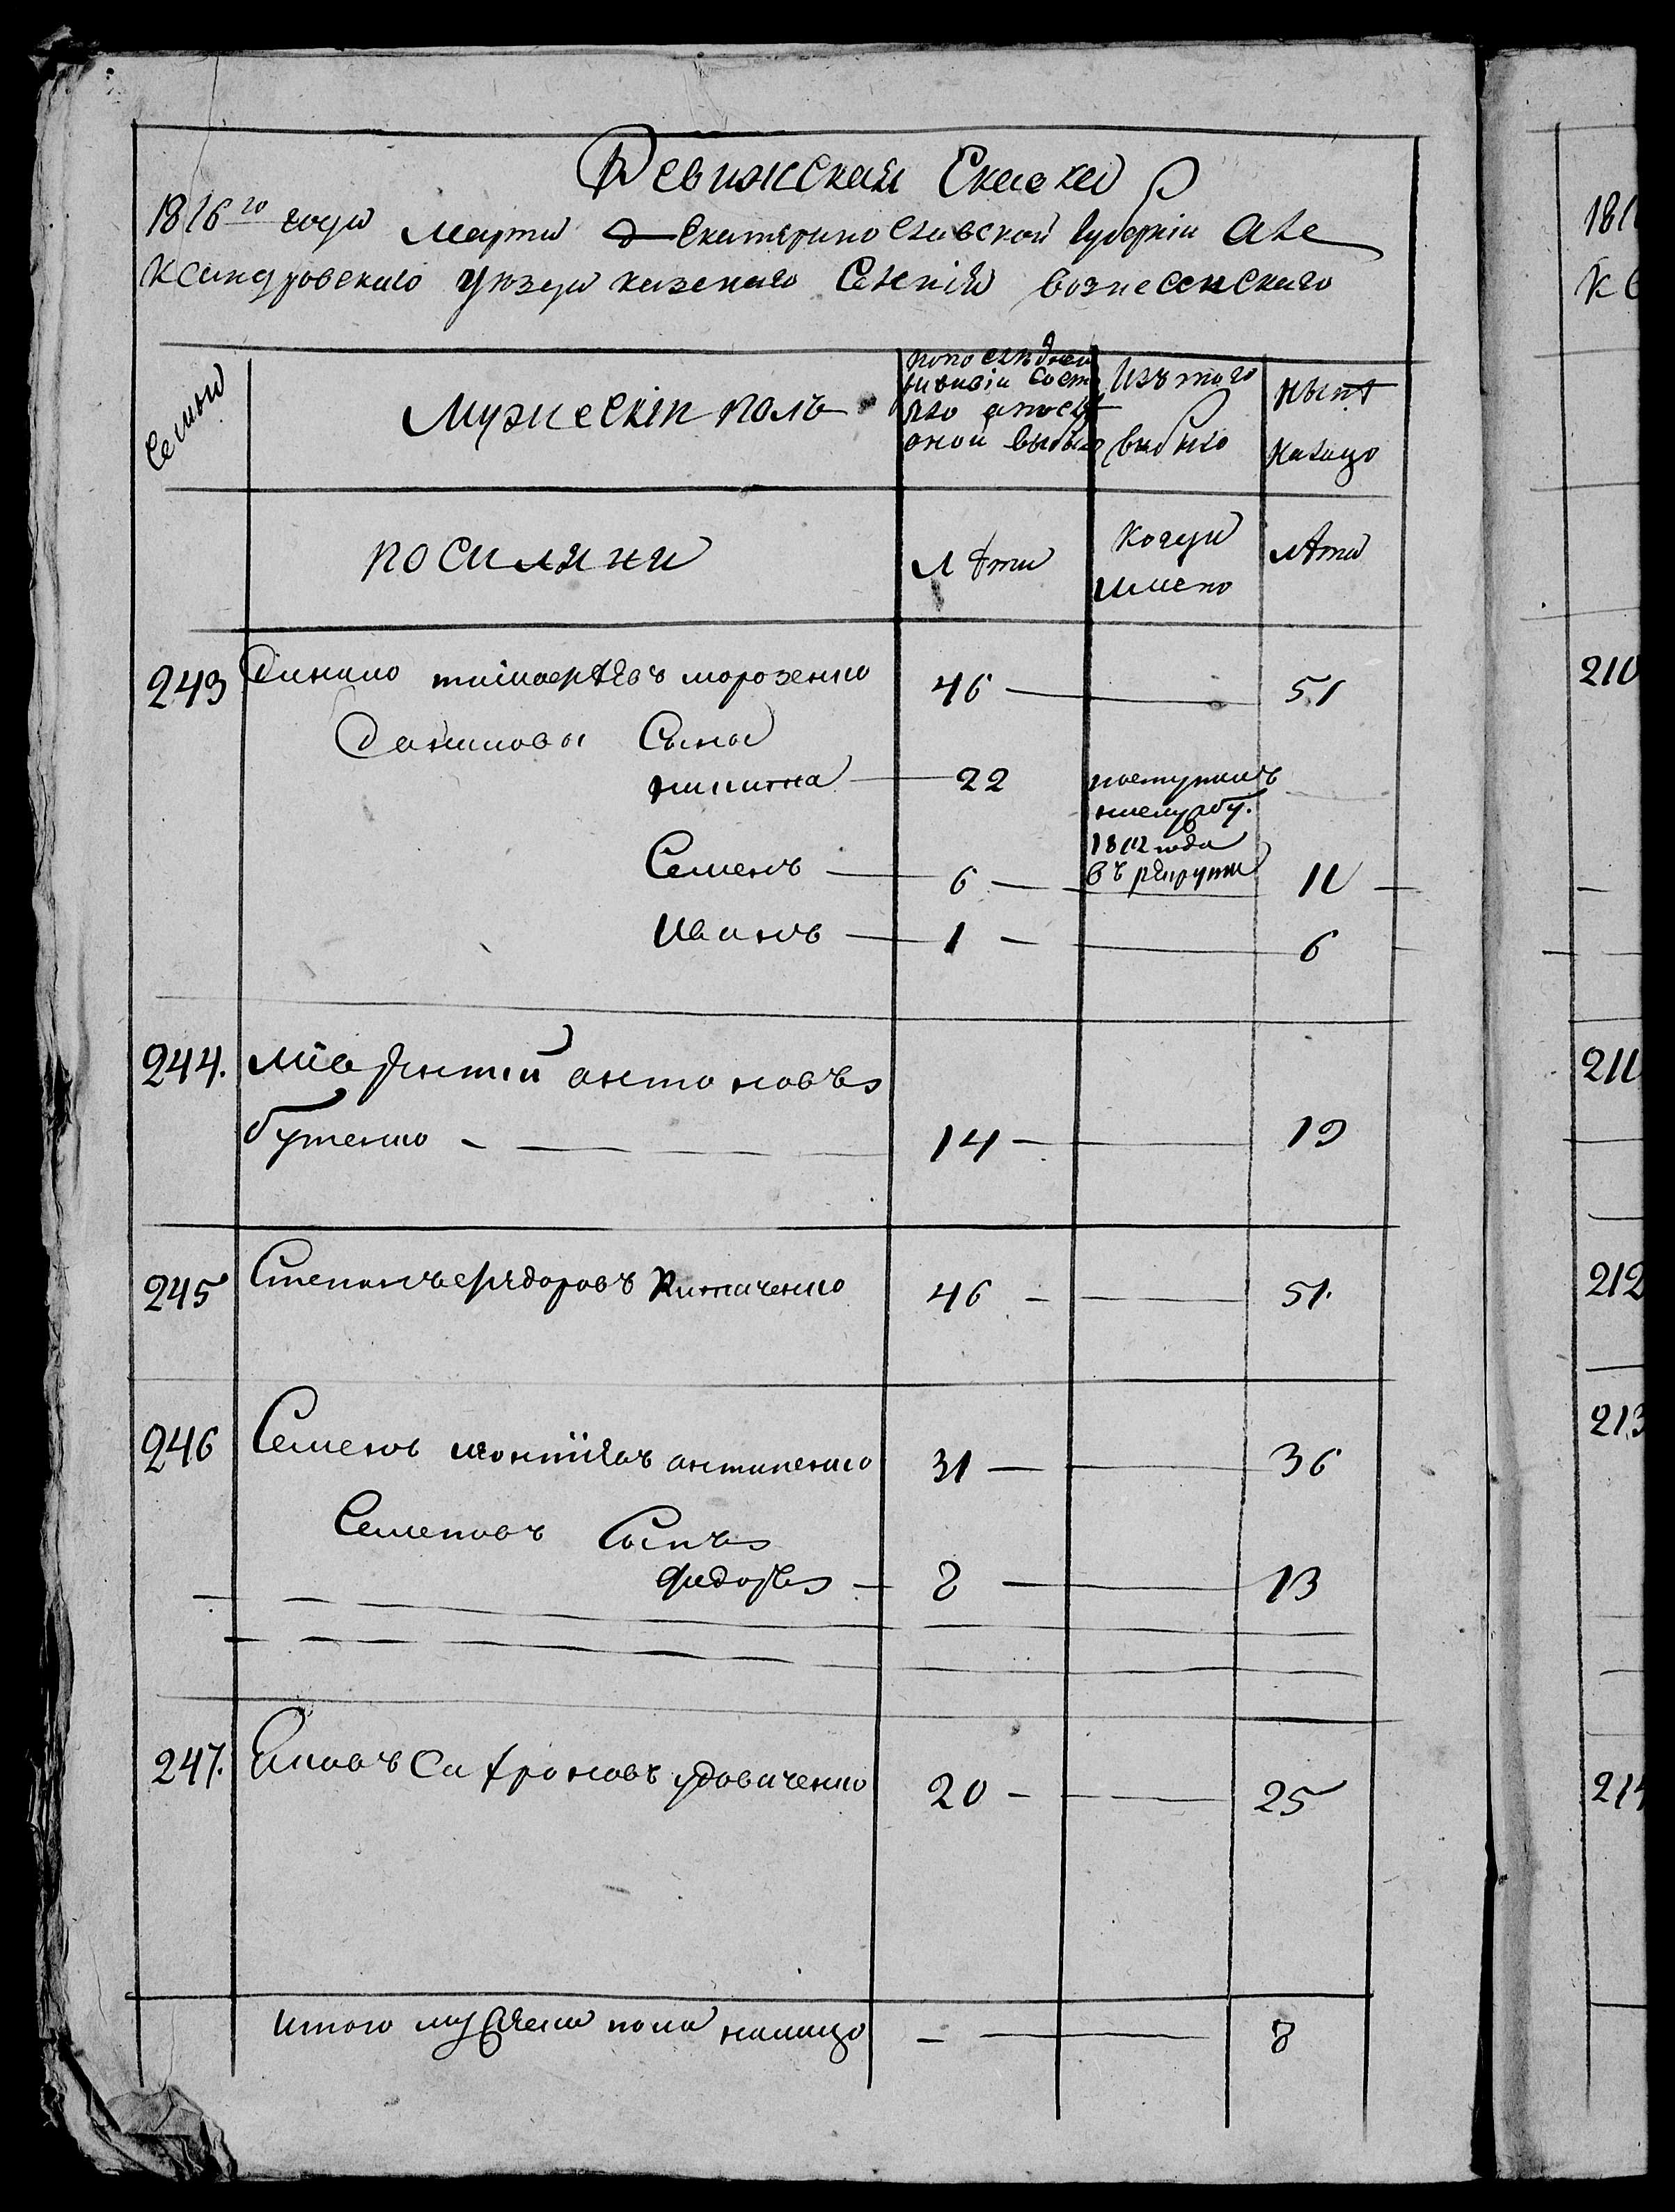 Ревижская Скаска
1816го года Марта Екатериносливской Губернии Але
ксандровскаго уюзда казенаго Селнiя вознесенскаго
Семьи
Мужескiй полъ
по последней
ревизiи состо
яло
оной выбыло
Изъ того
выбыло
нынѣ
налицо
поселяни
лѣта
когда
имено
лѣта
243 Данило морозенко 46 51
Даниловы Сыны
никита 22
поступилъ
1812 года
въ рекруты
Семенъ 6 11
Иванъ 1 6
244. антоновъ
бутенко 14 19
245 Степанъ федоровъ 46 51.
246 Семенъ антипенко 31 36
Семеновъ Сынъ
федоръ 8 13
247. Сафроновъ удовиченко 20 25
Итого пола налицо 8
1816
210
211
212
213
214